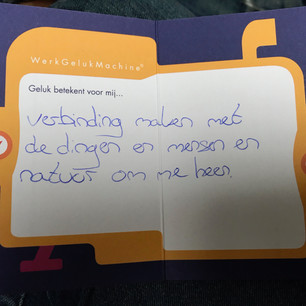 WerkGelukMachine®
Geluk betekent voor mij...
verbinding maken met
de dingen en mensen en
natuur om me heen.